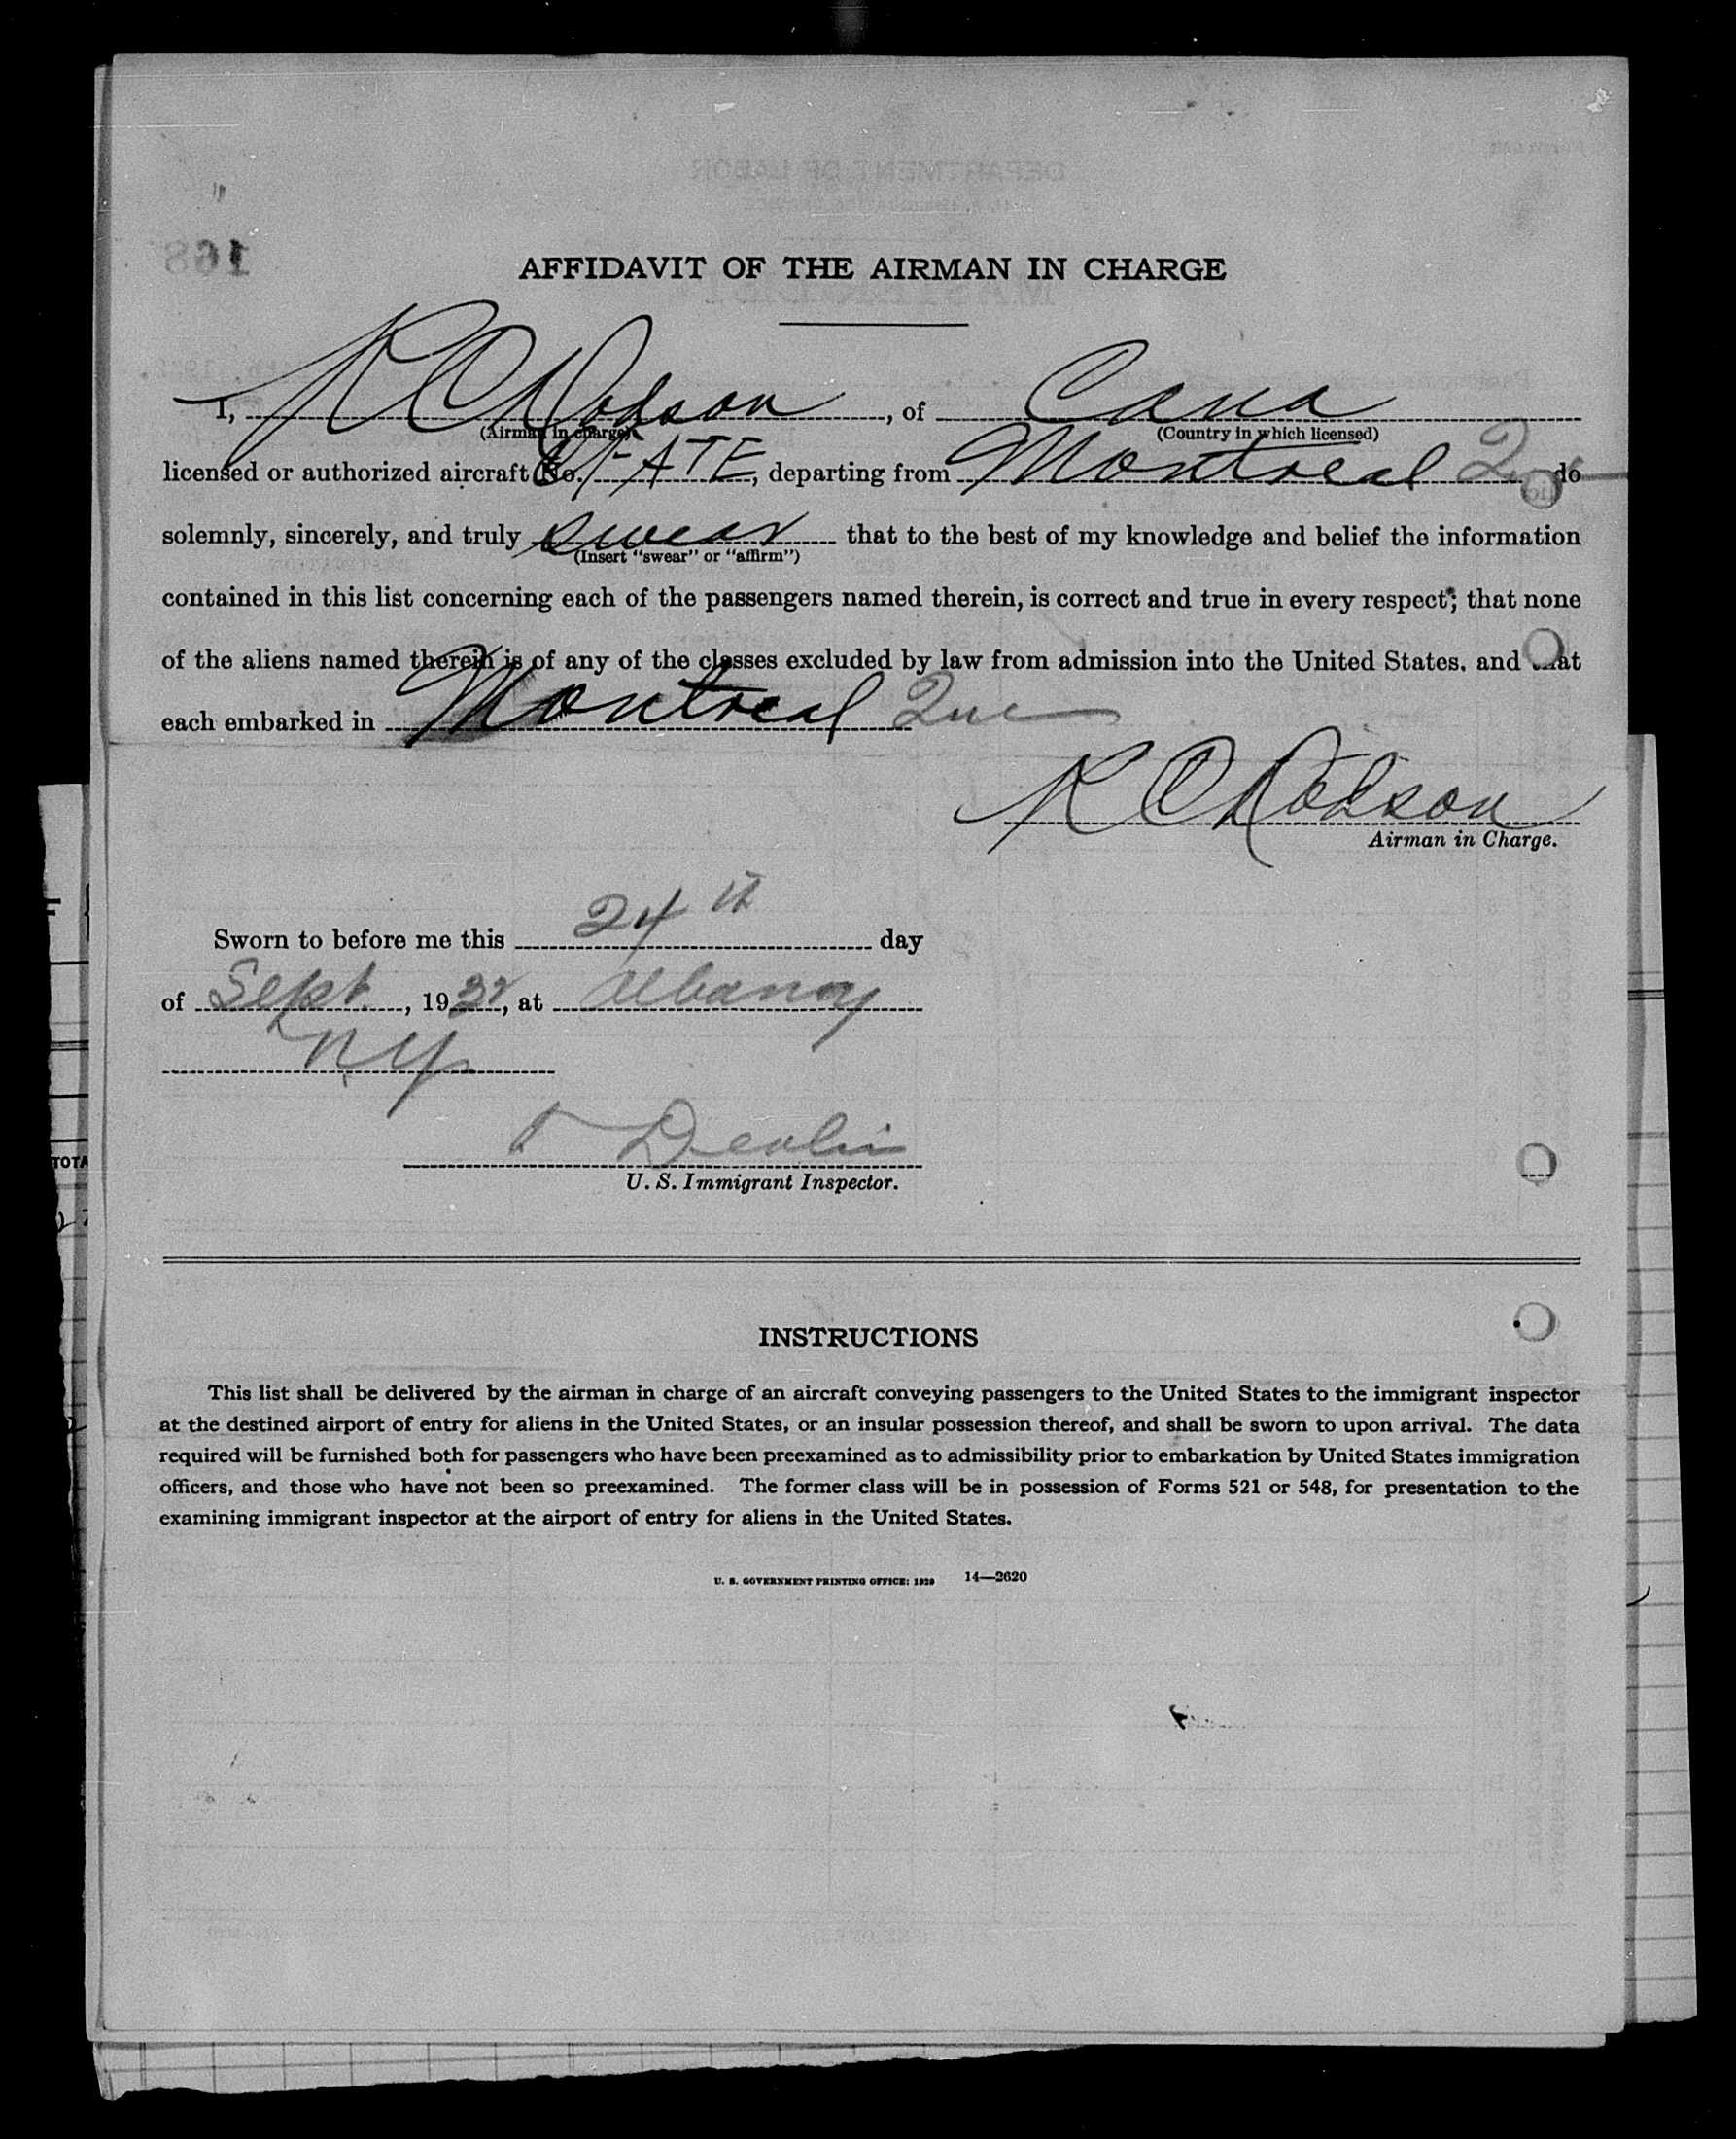 AFFIDAVIT OF THE AIRMAN IN CHARGE
I, R C Dobson, of Cana
(Airman in charge) (Country in which licensed)
licensed or authorized aircraft No. CF-ATE, departing from Montreal Que do
solemnly, sincerely, and truly swear that to the best of my knowledge and belief the information
(Insert "swear" or "affirm")
contained in this list concerning each of the passengers named therein, is correct and true in every respect; that none
of the aliens named therein is of any of the classes excluded by law from admission into the United States, and that
each embarked in Montreal Que
R C Dobson
Airman in Charge.
Sworn to before me this 24th day
of Sept., 1932, at Albany
NY
Devlin
U. S. Immigrant Inspector.
INSTRUCTIONS
This list shall be delivered by the airman in charge of an aircraft conveying passengers to the United States to the immigrant inspector
at the destined airport of entry for aliens in the United States, or an insular possession thereof, and shall be sworn to upon arrival. The data
required will be furnished both for passengers who have been preexamined as to admissibility prior to embarkation by United States immigration
officers, and those who have not been so preexamined. The former class will be in possession of Forms 521 or 548, for presentation to the
examining immigrant inspector at the airport of entry for aliens in the United States.
U. S. GOVERNMENT PRINTING OFFICE: 1929 14—2620